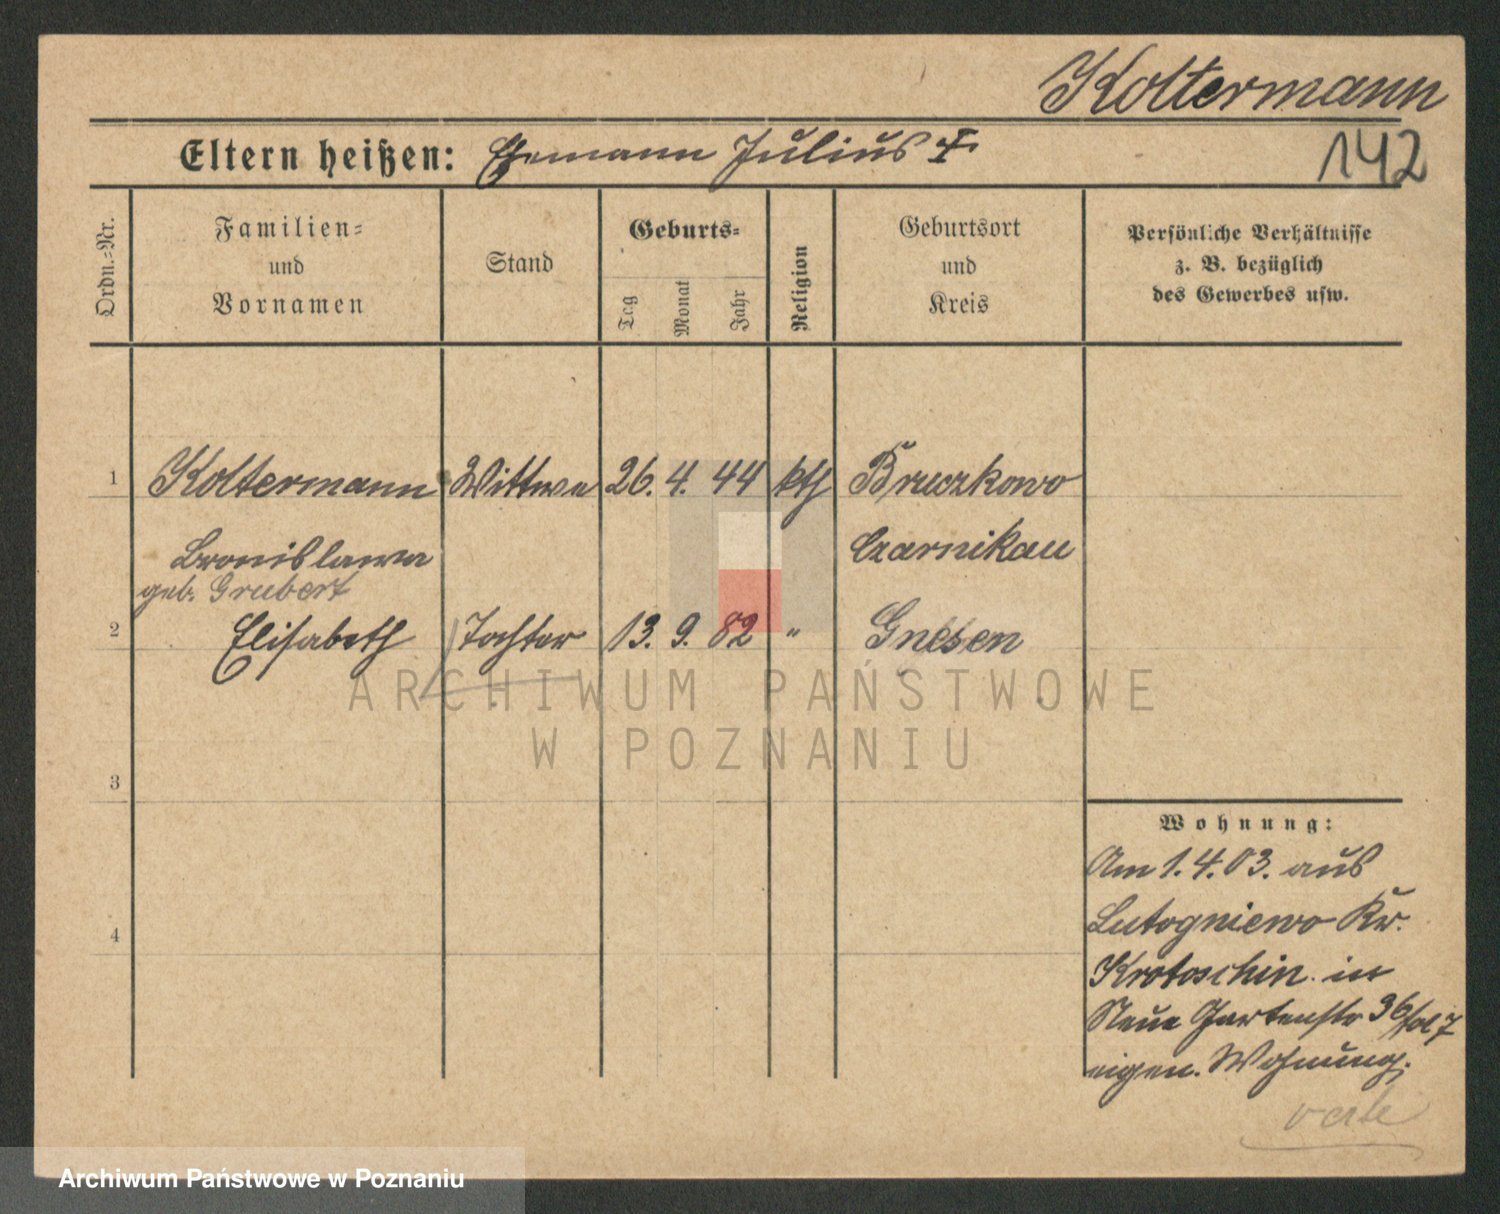 Koltermann
Eltern heißen: Ehemann Julius †
142
Ordn.=Nr.
Familien=
und
Vornamen
Stand
Geburts=
Tag
Monat
Jahr
Religion
Geburtsort
und
Kreis
Persönliche Verhältnisse
z. B. bezüglich
des Gewerbes usw.
1 Koltermann Wittwe 26. 4. 44 kth Bruczkowo
Bronislawa Czarnikau
geb. Grubert
2 Elisabeth Tochter 13. 9. 82 " Gnesen
ARCHIWUM PAŃSTWOWE
W POZNANIU
3
Wohnung:
Am 1.4.03. aus
Lutogniewo Kr.
4
Krotoschin in
Neue Gartenstr 36
eigen. Wohnung.
verte
Archiwum Państwowe w Poznaniu